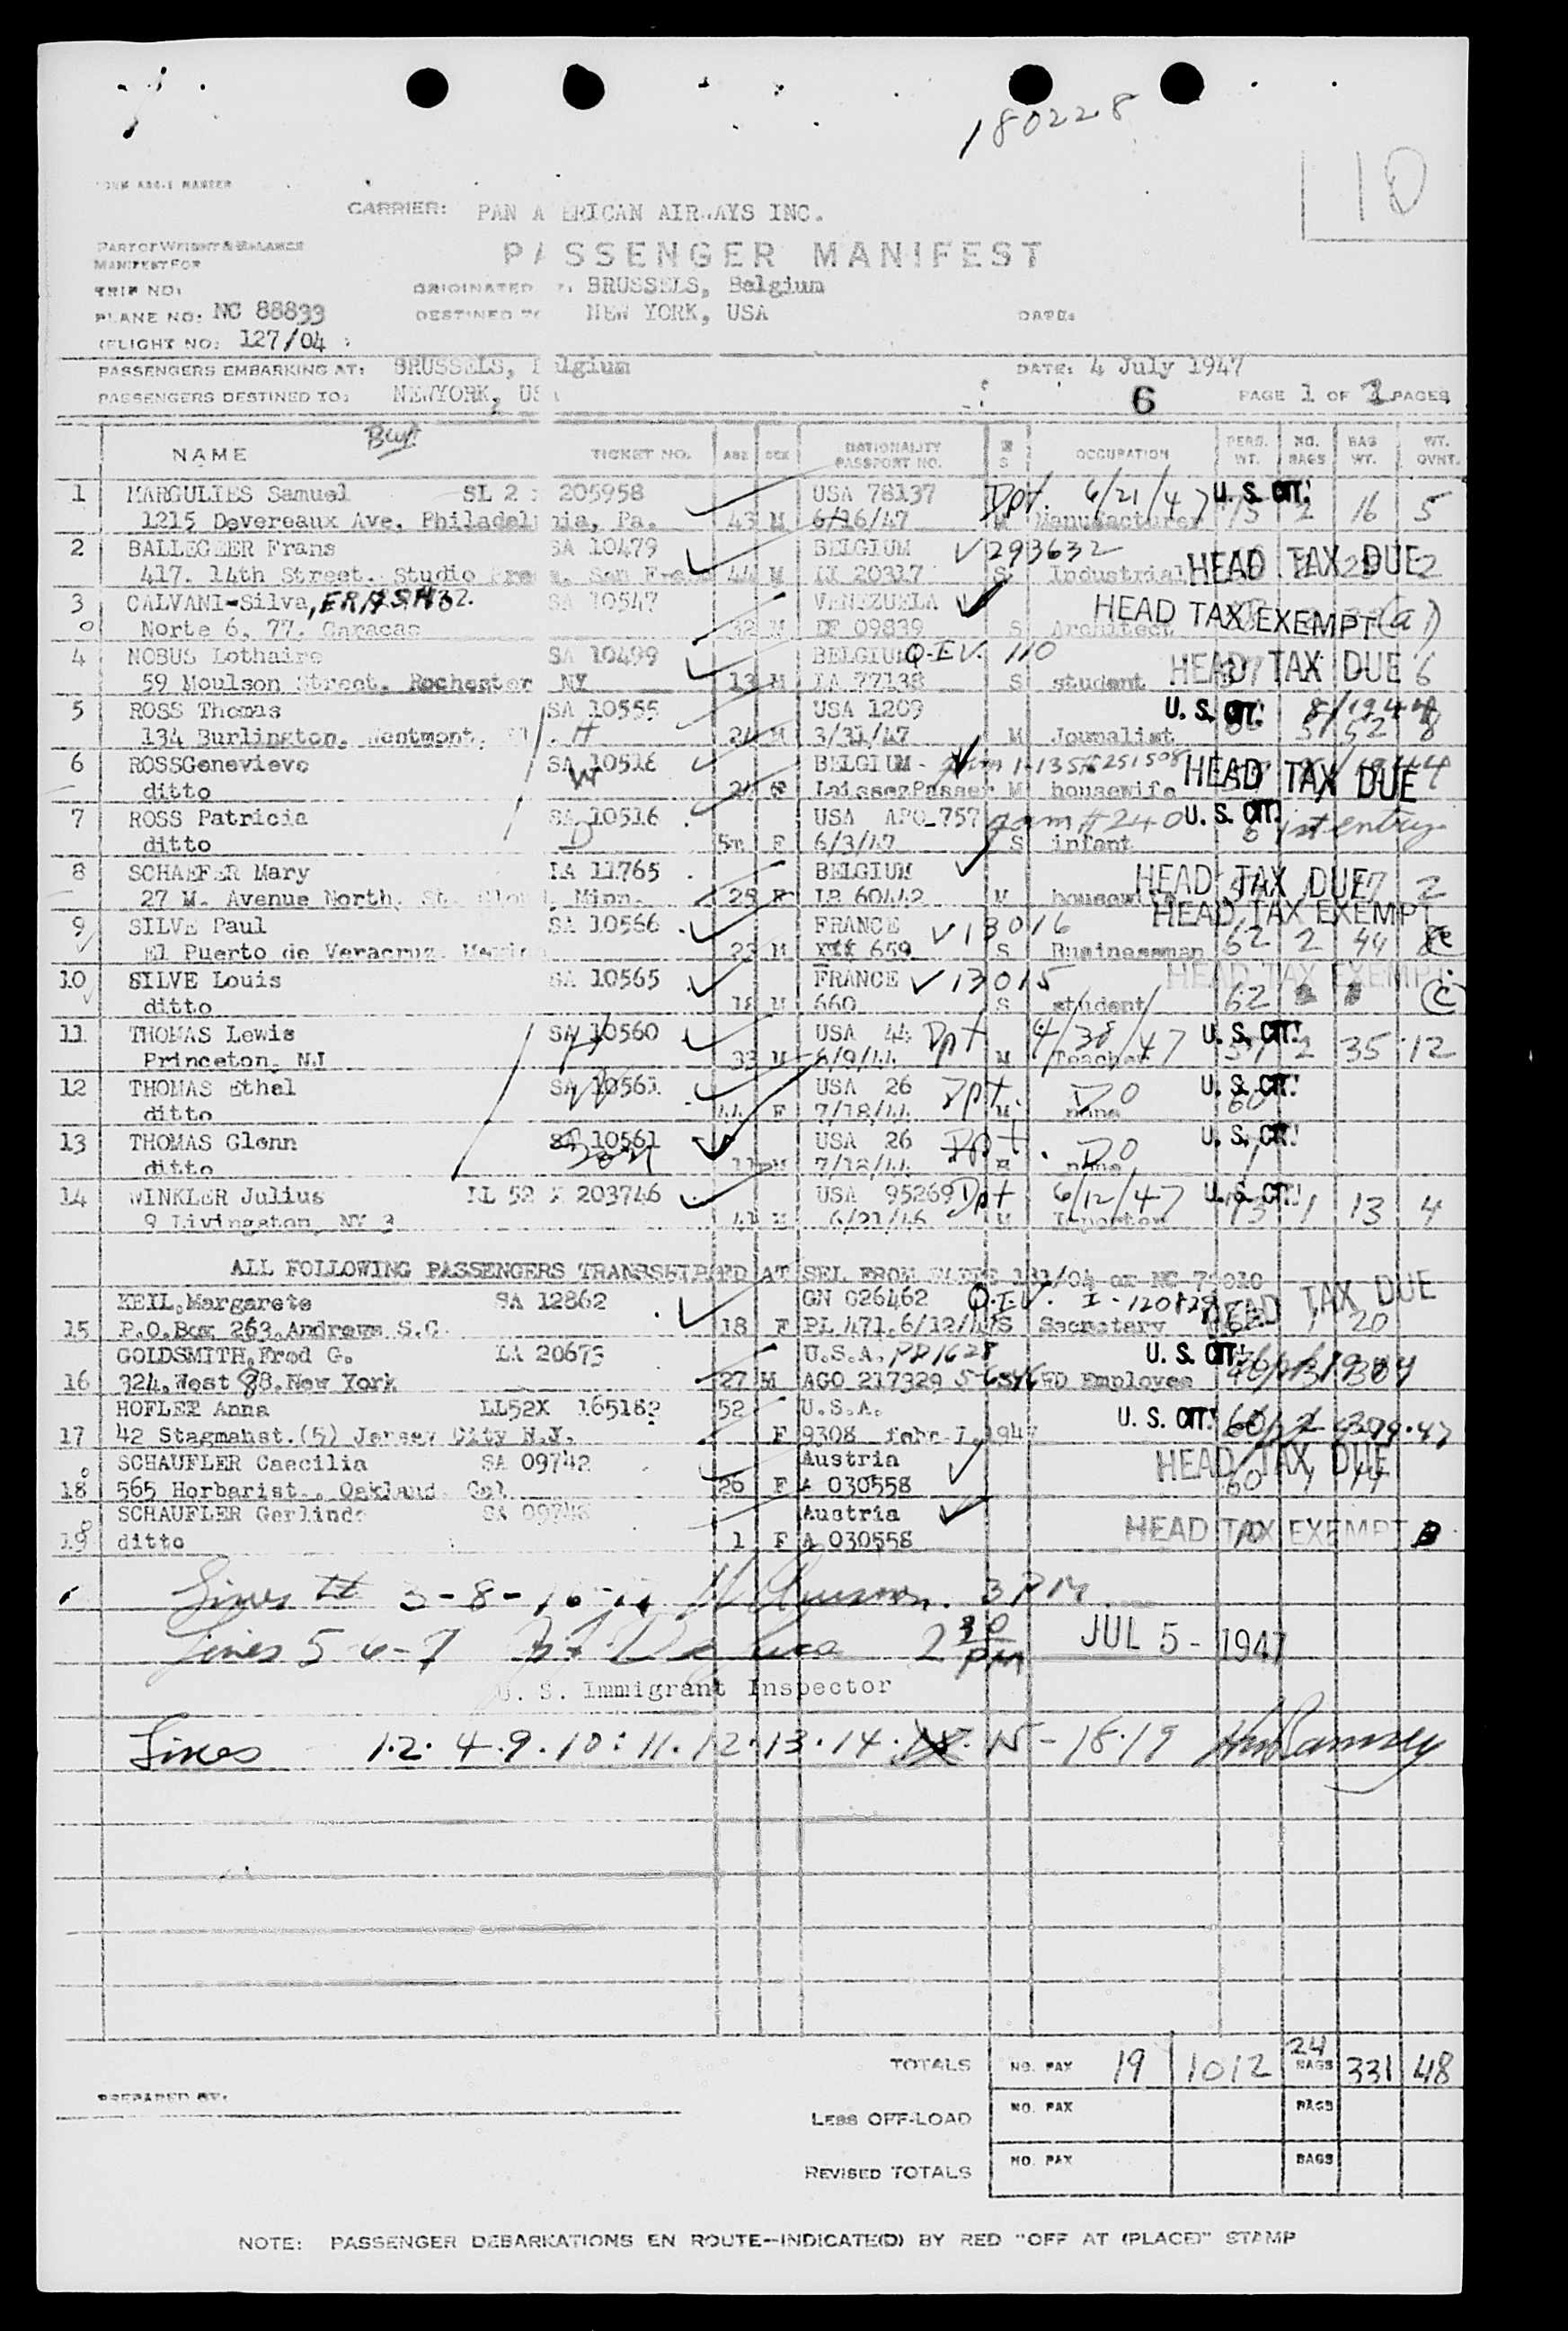 180228
10
CARRIER: PAN A ERICAN AIRWAYS INC.
PART OF WEIGHT & BALANCE
MANIFEST FOR
PA SSENGER MANIFEST
TRIP NO:
ORIGINATED BRUSSELS, Belgium
PLANE NO: NC 88833
DESTINED TO NEW YORK, USA
DATE:
(FLIGHT NO: 127/04
PASSENGERS EMBARKING AT: BRUSSELS, B lgium DATE: 4 July 1947
PASSENGERS DESTINED TO: NEWYORK, US 6 PAGE 1 OF PAGES
NAME TICKET NO. AGE SEX NATIONALITY PASSPORT NO. M S OCCUPATION PERS. WT. NO. BAGS BAG WT. WT. OVNT.
1 MARGULIES Samuel SL 2 205958 USA 78137 Dpt. 6/21/47 U. S. CIT.
1215 Devereaux Ave. Philadel hia, Pa. 43 M 6/16/47 M Manufacturer 75 2 16 5
2 BALLEGEER Frans SA 10479 BELGIUM 293632 HEAD TAX DUE
417. 14th Street. Studio 44 M 20317 S Industrial 2
3 CALVANI-Silva, SA 10547 VENEZUELA HEAD TAX EXEMPT (a)
Norte 6, 77. Caracas 32 M DF 09839 S Architect
4 NOBUS Lothaire SA 10499 BELGIUM Q.I.V. 110 HEAD TAX DUE 6
59 Moulson Street, Rochester NY 13 M IA 77138 S student
5 ROSS Thomas SA 10555 USA 1209 U. S. CIT.
134 Burlington, Westmont, H 24 M 3/31/47 M Journalist 52 8
6 ROSSGenevieve SA 10516 BELGIUM HEAD TAX DUE
ditto W 24 F LaissezPasser M housewife
7 ROSS Patricia SA 10516 USA APO 757 #240 U. S. CIT. 1st entry
ditto D 5m F 6/3/47 S infant
8 SCHAEFER Mary LA 11765 BELGIUM HEAD TAX DUE
27 M. Avenue North, St. Clou , Minn. 25 F LP 60442 M housewife 2
9 SILVE Paul SA 10566 FRANCE 13016 HEAD TAX EXEMPT
El Puerto de Veracruz. Mexico 23 M 659 S Businessman 62 2 44
10 SILVE Louis SA 10565 FRANCE 13015 HEAD TAX EXEMPT
ditto 18 M 660 S student 62 (C)
11 THOMAS Lewis SA 10560 USA 44 Dpt 4/38/47 U. S. CIT.
Princeton, NJ H 33 M 6/9/44 M Teacher 2 35 12
12 THOMAS Ethel SA 10561 USA 26 Dpt. DO U. S. CIT.
ditto W 44 F 7/18/44 M none 60
13 THOMAS Glenn SA 10561 USA 26 Dpt. DO U. S. CIT.
ditto Son 7/18/44 none
14 WINKLER Julius LL 52 X 203746 USA 95269 Dpt 6/12/47 U. S. CIT.
9 Livingston, NY 3 41 M 6/21/46 M Importer 73 1 13 4
ALL FOLLOWING PASSENGERS TRANSSHIPPED AT SEL FROM 131/04 on NC
KEIL,Margarete SA 12862 GN 026462 Q.I.V. I-120829 HEAD TAX DUE
15 P.O.Box 263.Andrews S.C. 18 F PL 471.6/12/47S Secretary 1 20
GOLDSMITH,Fred G. LA 20673 U.S.A. PP1628 U. S. CIT.
16 324,West 88.New York 27 M AGO 217329 WD Employee
HOFLER Anna LL52X 165182 52 U.S.A. U. S. CIT.
17 42 Stagmahst.(5) Jersey City N.J. F 9308 febr 7.1947
SCHAUFLER Caecilia SA 09742 Austria HEAD TAX DUE
18 565 Horbarist., Oakland Cal 26 F A 030558 60 1 14
SCHAUFLER Gerlinde SA 09743 Austria HEAD TAX EXEMPT B
19 ditto 1 F A 030558
Lines # 3-8-16-17 3 PM.
Lines 5-6-7 2 30 pm JUL 5 - 1947
U. S. Immigrant Inspector
Lines 1.2.4.9.10:11.12.13.14. 15-18.19
TOTALS NO. PAX 19 1012 24 BAGS 331 48
PREPARED BY:
LESS OFF-LOAD NO. PAX BAGS
REVISED TOTALS NO. PAX BAGS
NOTE: PASSENGER DEBARKATIONS EN ROUTE—INDICATE(D) BY RED "OFF AT (PLACE)" STAMP